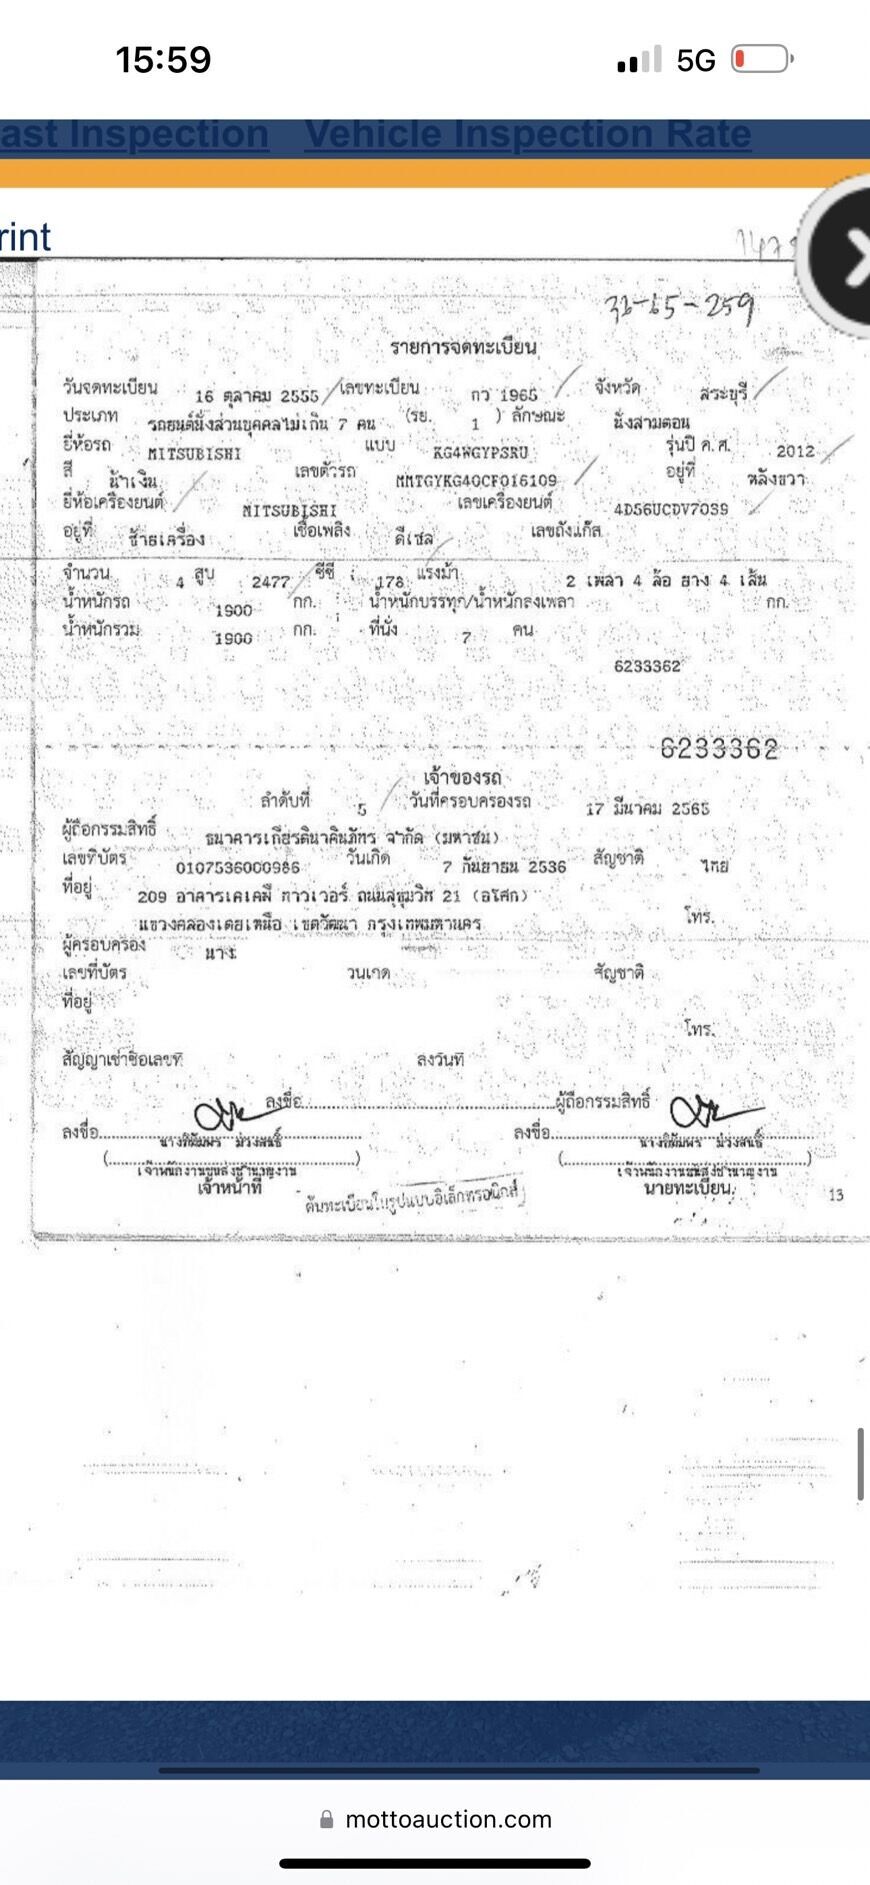 15:59 5G
ast Inspection Vehicle Inspection Rate
rint
รายการจดทะเบียน
วันจดทะเบียน 16 ตุลาคม 2555 เลขทะเบียน กว 1965 จังหวัด สระบุรี
ประเภท รถยนต์นั่งส่วนบุคคลไม่เกิน 7 คน (รย. 1 ) ลักษณะ นั่งสามตอน
ยี่ห้อรถ MITSUBISHI แบบ KG4WGYPSRU รุ่นปี ค.ศ. 2012
สี น้ำเงิน เลขตัวรถ MMTGYKG40CF016109 อยู่ที่ หลังขวา
ยี่ห้อเครื่องยนต์ MITSUBISHI เลขเครื่องยนต์ 4D56UCDV7039
อยู่ที่ ซ้ายเครื่อง เชื้อเพลิง ดีเซล เลขถังแก๊ส
จำนวน 4 สูบ 2477 ซีซี 178 แรงม้า 2 เพลา 4 ล้อ ยาง 4 เส้น
น้ำหนักรถ 1900 กก. น้ำหนักบรรทุก/น้ำหนักลงเพลา กก.
น้ำหนักรวม 1900 กก. ที่นั่ง 7 คน
6233362
6233362
เจ้าของรถ
ลำดับที่ 5 วันที่ครอบครองรถ 17 มีนาคม 2565
ผู้ถือกรรมสิทธิ์ ธนาคารเกียรตินาคินภัทร จำกัด (มหาชน)
เลขที่บัตร 0107536000986 วันเกิด 7 กันยายน 2536 สัญชาติ ไทย
ที่อยู่ 209 อาคารเคเคพี ทาวเวอร์ ถนนสุขุมวิท 21 (อโศก)
แขวงคลองเตยเหนือ เขตวัฒนา กรุงเทพมหานคร โทร.
ผู้ครอบครอง นาง
เลขที่บัตร วันเกิด สัญชาติ
ที่อยู่
โทร.
สัญญาเช่าซื้อเลขที่ ลงวันที่
ลงชื่อ ผู้ถือกรรมสิทธิ์
ลงชื่อ ลงชื่อ
ม่วงสนธิ์ ม่วงสนธิ์
เจ้าพนักงานขนส่งชำนาญงาน เจ้าพนักงานขนส่งชำนาญงาน
เจ้าหน้าที่ นายทะเบียน
ต้นทะเบียนในรูปแบบอิเล็กทรอนิกส์
13
mottoauction.com